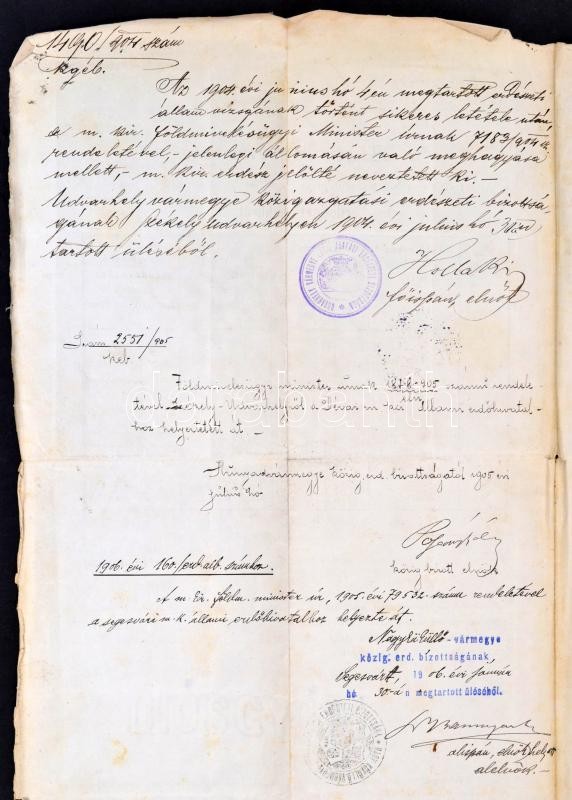 1490/904 szám
kgéb.
Az 1904. évi június hó 4én megtartott erdészeti
állam vizsgának történt sikeres letétele után
a m. kir. Földmivelésügyi Minister úrnak 7183/904 sz.
rendeletével, - jelenlegi állomásán való meghagyása
mellett, - m. kir. erdész jelölté neveztetett ki. -
Udvarhely vármegye közigazgatási erdészeti bizottsá-
gának Székely udvarhelyen 1904. évi július hó
tartott üléséből.
főispán, elnök
Szám 2551/905
keb
Földmivelésügyi minister úrnak 905 számú rendele-
tével Székely-Udvarhelyről a Dévai m. kir. állami erdőhivatal-
hoz helyeztetett át -
Hunyadvármegye közig. erd. bizottságától 1905 évi
július hó
közig. bizotts. elnök
1906. évi 160./erd. alb. számhoz.
A m. kir. földm. minister úr, 1905. évi 79532. számú rendeletével
a segesvári m. k. állami erdőhivatalhoz helyezte át.
Nagyküküllő - vármegye
közig. erd. bizottságának
Segesvárt, 1906. évi január
hó 30-án megtartott üléséből.
alispán, elnök helyett
alelnök.